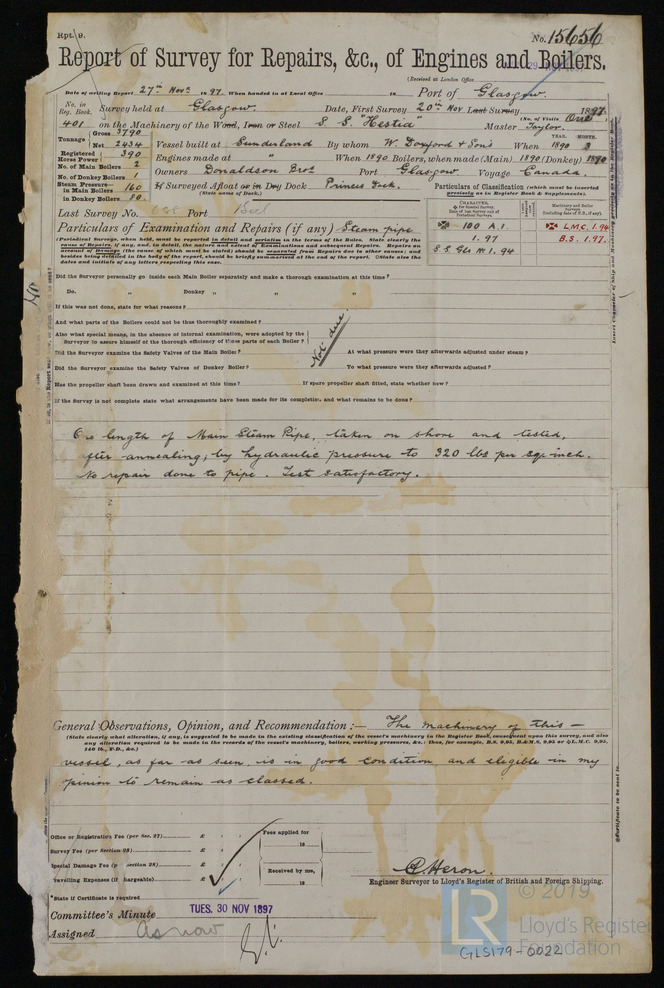 Rpt. 9.
No. 15656
Report of Survey for Repairs, &c., of Engines and Boilers.
(Received at London Office
Date of writing Report 27th Novr 1897 When handed in at Local Office 18 Port of Glasgow.
No. in Reg. Book. Survey held at Glasgow. Date, First Survey 20th Nov Last Survey 1897
(No. of Visits One)
401 on the Machinery of the Wood, Iron or Steel S.S. "Hestia" Master Taylor.
Tonnage Gross 3790
Net 2434
Vessel built at Sunderland By whom W. Doxford & Sons When 1890 YEAR. MONTH. 3
Registered Horse Power 390
Engines made at " When 1890 Boilers, when made (Main) 1890 (Donkey) 1890
No. of Main Boilers 2
No. of Donkey Boilers 1
Owners Donaldson Bros Port Glasgow Voyage Canada.
Steam Pressure in Main Boilers 160
in Donkey Boilers 80
If Surveyed Afloat or in Dry Dock Princes Dock.
(State name of Dock.)
Particulars of Classification (which must be inserted precisely as in Register Book & Supplements).
Last Survey No. Port
CHARACTER.
Machinery and Boiler Surveys
100 A.1.
1.97
S.S. Gls No 1. 94
L.M.C. 1.94
B.S. 1.97.
Particulars of Examination and Repairs (if any) Steam pipe
(Periodical Surveys, when held, must be reported in detail and seriatim in the terms of the Rules. State clearly the
Did the Surveyor personally go inside each Main Boiler separately and make a thorough examination at this time?
Do. " Donkey " " "
If this was not done, state for what reasons?
And what parts of the Boilers could not be thus thoroughly examined?
Also what special means, in the absence of internal examination, were adopted by the
Surveyor to assure himself of the thorough efficiency of those parts of each Boiler?
Not due
Did the Surveyor examine the Safety Valves of the Main Boiler? At what pressure were they afterwards adjusted under steam?
Did the Surveyor examine the Safety Valves of Donkey Boiler? To what pressure were they afterwards adjusted?
Has the propeller shaft been drawn and examined at this time? If spare propeller shaft fitted, state whether new?
If the Survey is not complete state what arrangements have been made for its completion and what remains to be done?
One length of Main Steam Pipe, taken on shore and tested,
after annealing, by hydraulic pressure to 320 lbs per sq. inch.
No repair done to pipe. Test satisfactory.
General Observations, Opinion, and Recommendation:— The machinery of this —
(State clearly what alteration, if any, is suggested to be made in the existing classification of the vessel's machinery in the Register Book, consequent upon this survey, and also
any alteration required to be made in the records of the vessel's machinery, boilers, working pressures, &c.; thus, for example, B.S. 9,95, B.&M.S. 9,95 or L.M.C. 9,95,
140 lb., F.D., &c.)
vessel, as far as seen, is in good condition and eligible in my
pinion to remain as classed.
Office or Registration Fee (per Sec. 27) £ : :
Survey Fee (per Section 28) £ : :
Special Damage Fee (p Section 28) £ : :
Travelling Expenses (if chargeable) £ : :
Fees applied for
18
Received by me,
18
C. Heron.
Engineer Surveyor to Lloyd's Register of British and Foreign Shipping.
*State if Certificate is required
Committee's Minute TUES. 30 NOV 1897
Assigned As now
© 2019
LR Lloyd's Register
Foundation
GLS179-0022